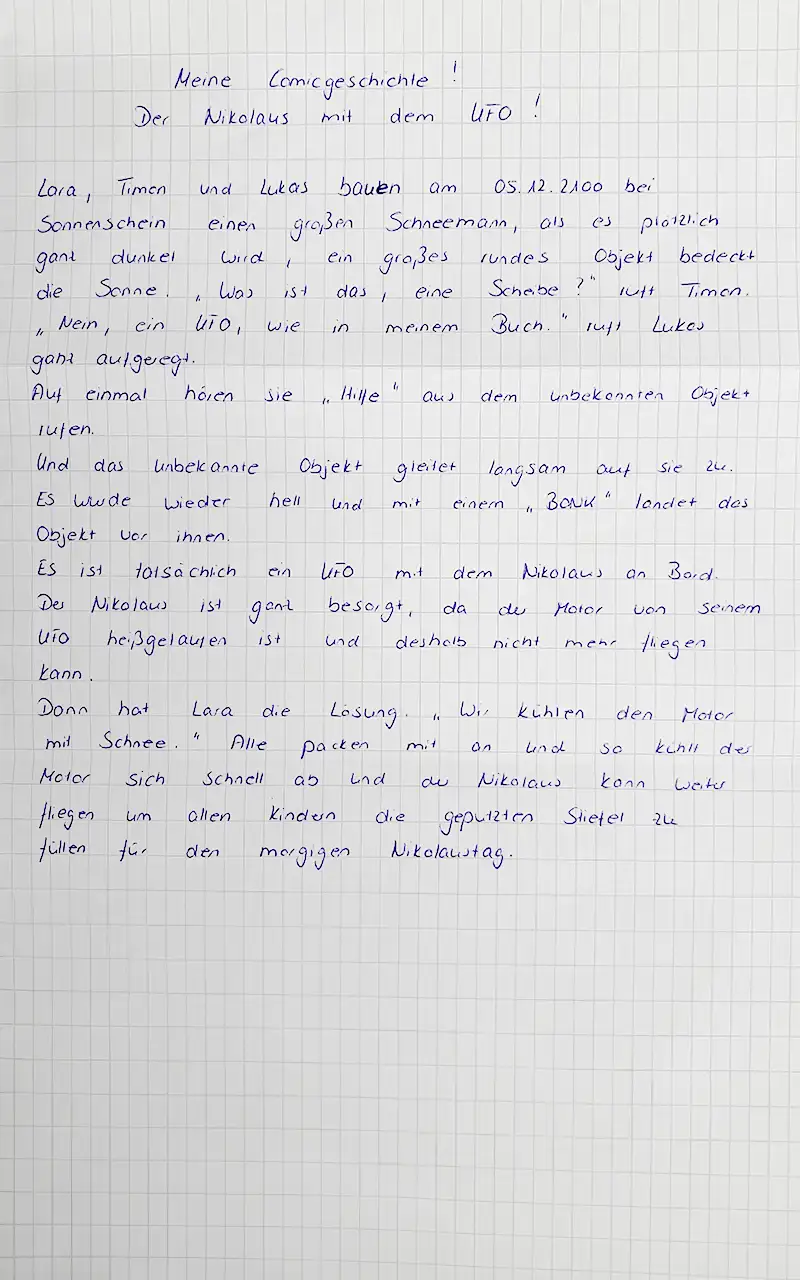 Meine Comicgeschichte !
Der Nikolaus mit dem UFO !
Lara, Timon und Lukas bauen am 05.12.2100 bei
Sonnenschein einen großen Schneemann, als es plötzlich
ganz dunkel wird, ein großes rundes Objekt bedeckt
die Sonne. „Was ist das, eine Scheibe?" ruft Timon.
„Nein, ein UFO, wie in meinem Buch." ruft Lukas
ganz aufgeregt.
Auf einmal hören sie „Hilfe" aus dem unbekannten Objekt
rufen.
Und das unbekannte Objekt gleitet langsam auf sie zu.
Es wurde wieder hell und mit einem „BONK" landet das
Objekt vor ihnen.
Es ist tatsächlich ein UFO mit dem Nikolaus an Bord.
Der Nikolaus ist ganz besorgt, da der Motor von seinem
UFO heißgelaufen ist und deshalb nicht mehr fliegen
kann.
Dann hat Lara die Lösung. „Wir kühlen den Motor
mit Schnee." Alle packen mit an und so kühlt der
Motor sich schnell ab und der Nikolaus kann weiter
fliegen um allen Kindern die geputzten Stiefel zu
füllen für den morgigen Nikolaustag.